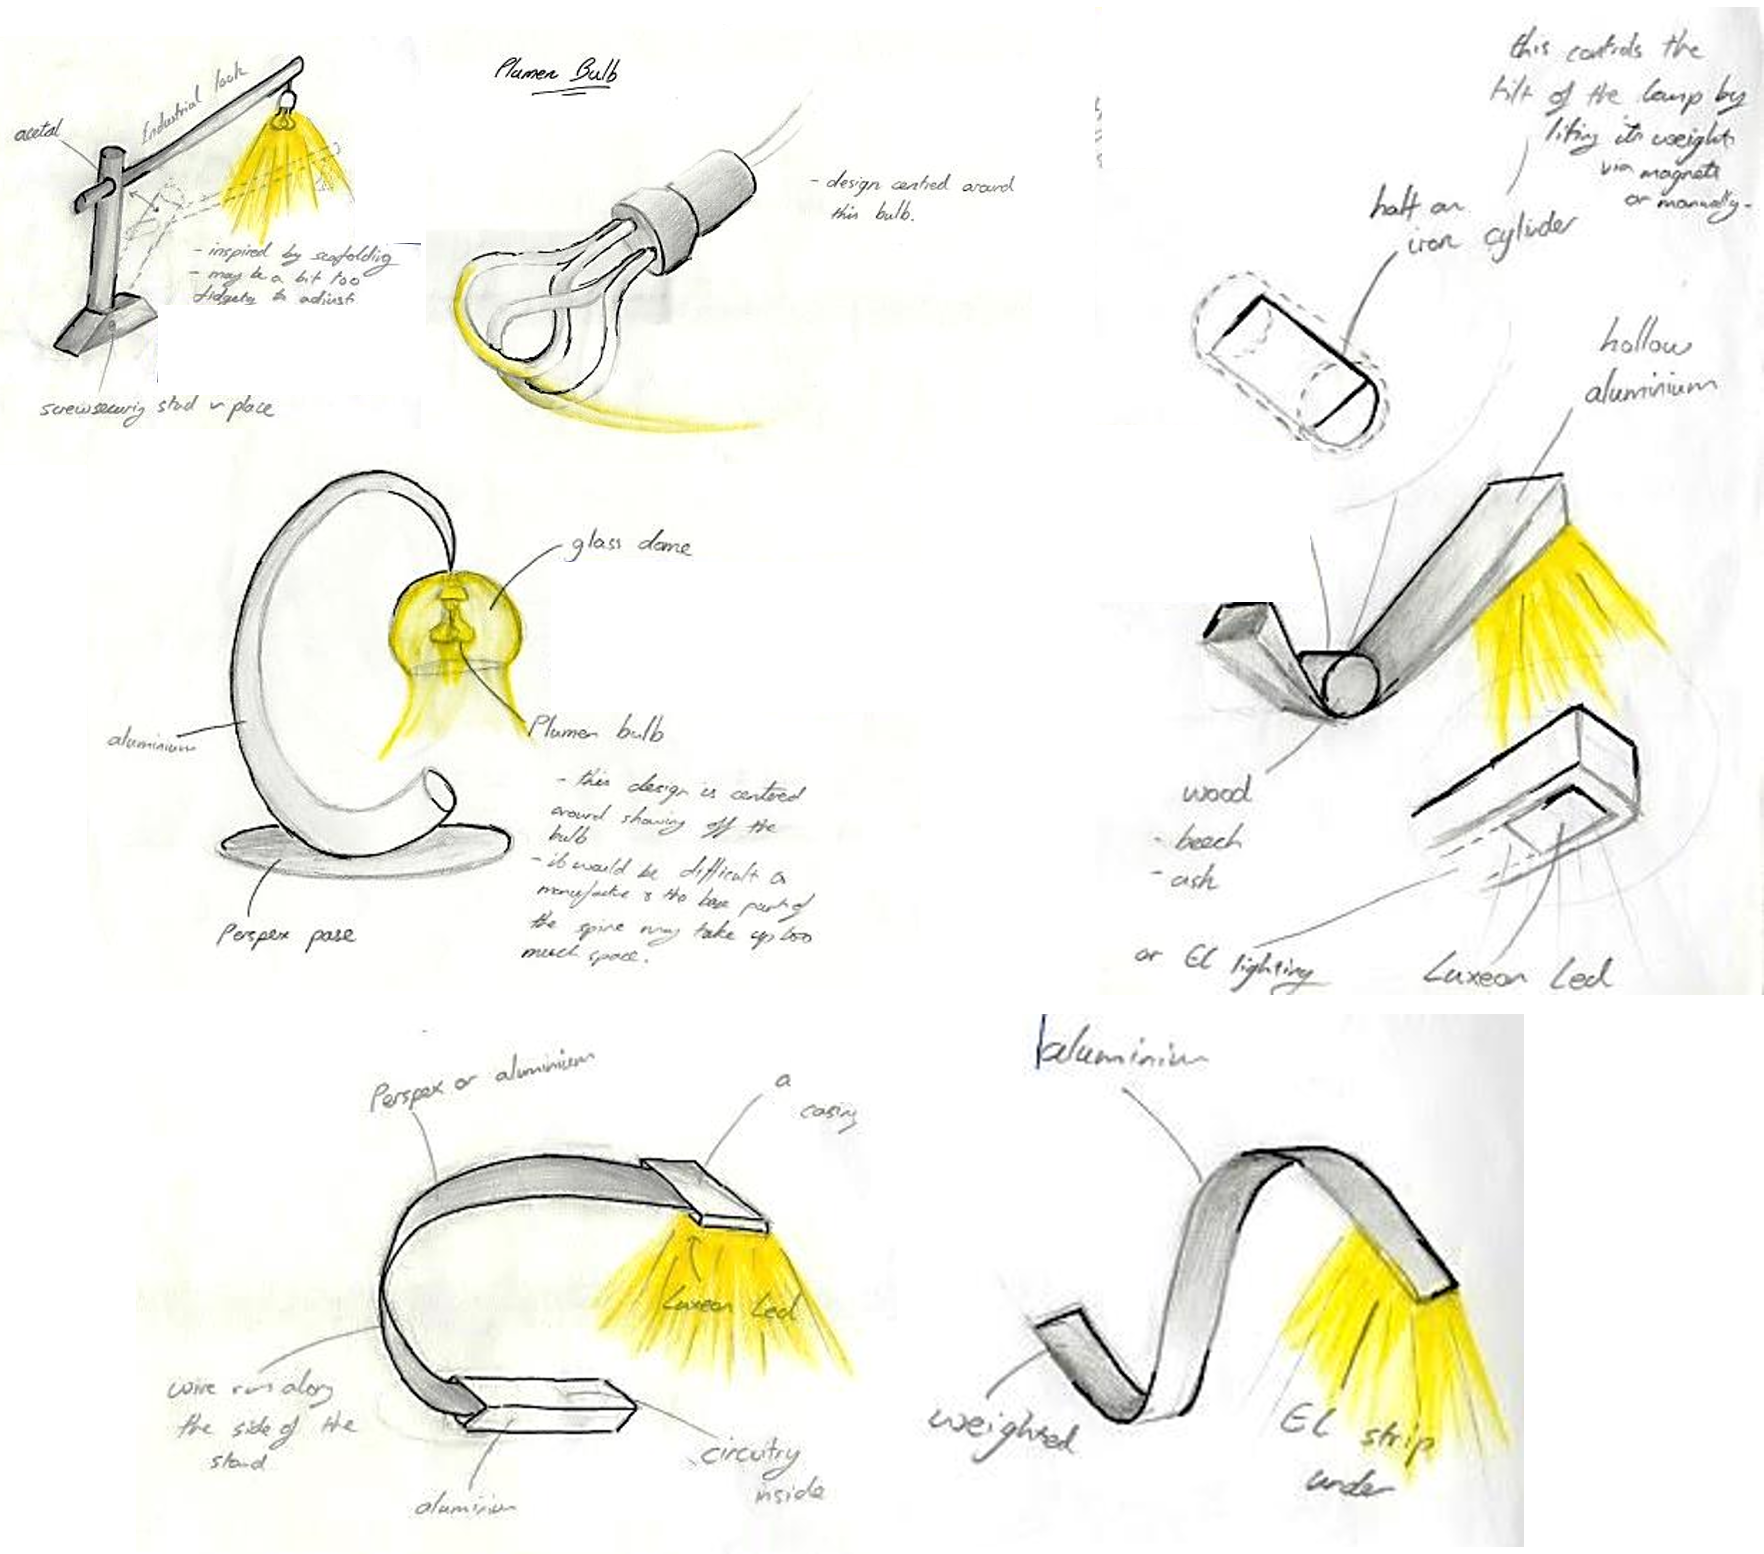 acetal
Industrial look
- inspired by scafolding
- may be a bit too
fidgety to adjust
screw securing stud in place
Plumen Bulb
- design centred around
this bulb.
this controls the
tilt of the lamp by
lifing its weight
via magnets
or manually.
half an
iron cylinder
hollow
aluminium
wood
- beech
- ash
or EL lighting
Luxeon Led
glass dome
aluminium
Plumen bulb
- this design is centred
around showing off the
bulb
- it would be difficult to
manufactue & the base part of
the spine may take up too
much space.
Perspex pase
Perspex or aluminium
a
casing
Luxeon Led
wire run along
the side of the
stand
aluminium
circuitry
inside
aluminium
weighted
EL strip
under